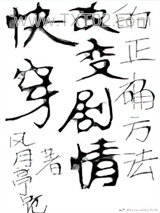 www.TXT02.com
快穿
改变剧情
的正确方法
风月亭
著